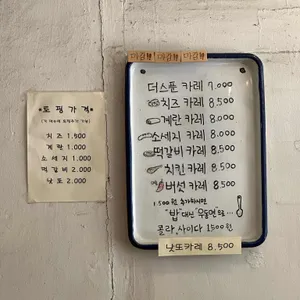 *토핑가격*
치즈 1,500
계란 1.000
소세지 1.000
떡갈비 2.000
낫또 2.000
더스푼 카레 7.000
치즈 카레 8.500
계란 카레 8.000
소세지 카레 8.000
떡갈비 카레 8.500
치킨 카레 8.500
버섯 카레 8.500
1.500원 추가하시면
"밥" 대신 "우동면"로...
콜라, 사이다 1500원
낫또카레 8,500